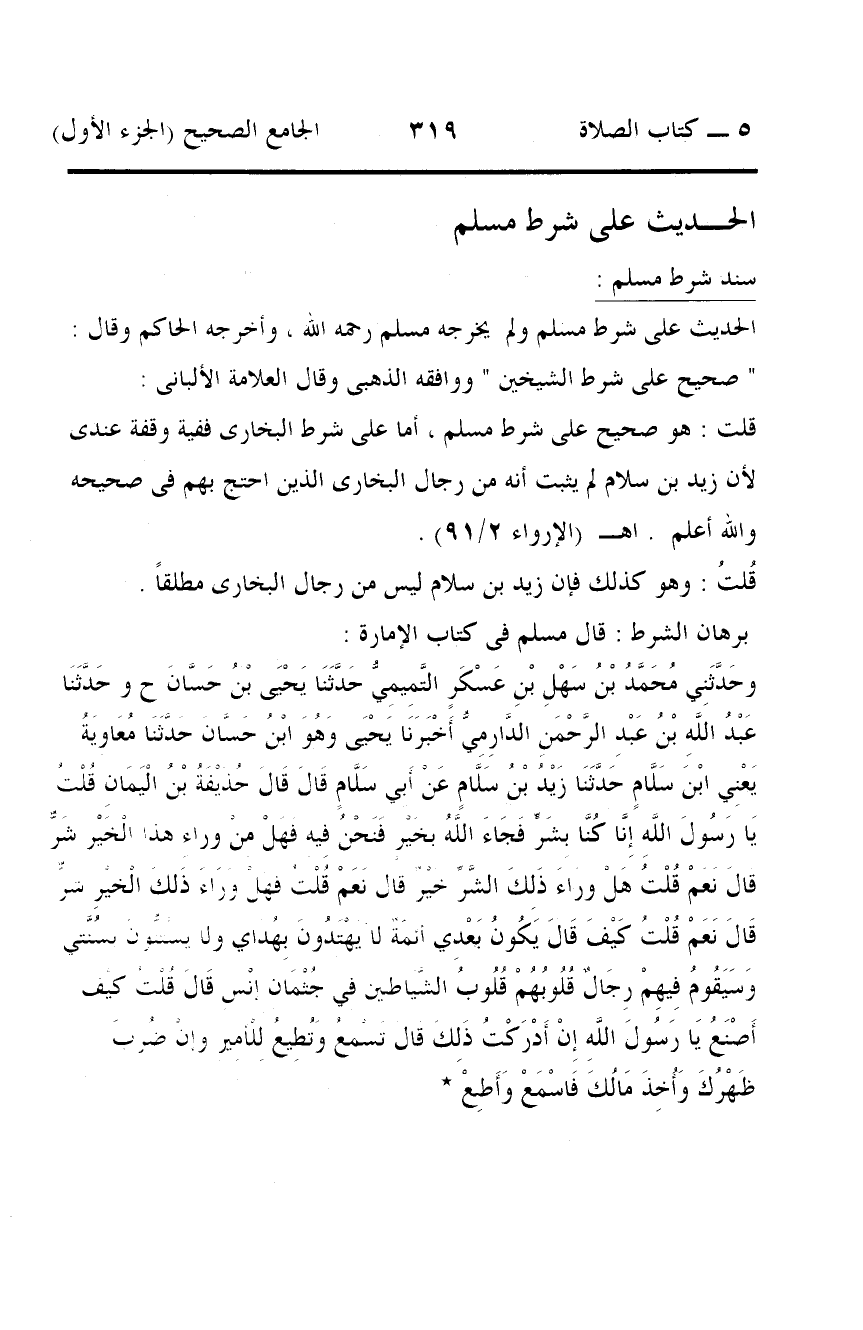 ٥ ــ كتاب الصلاة ٣١٩ الجامع الصحيح (الجزء الأول)
الحـــديث على شرط مسلم
سند شرط مسلم :
الحديث على شرط مسلم ولم يخرجه مسلم رحمه الله ، وأخرجه الحاكم وقال :
" صحيح على شرط الشيخين " ووافقه الذهبى وقال العلامة الألبانى :
قلت : هو صحيح على شرط مسلم ، أما على شرط البخارى ففية وقفة عندى
لأن زيد بن سلام لم يثبت أنه من رجال البخارى الذين احتج بهم فى صحيحه
والله أعلم . اهــ (الإرواء ٩١/٢) .
قُلتُ : وهو كذلك فإن زيد بن سلام ليس من رجال البخارى مطلقاً .
برهان الشرط : قال مسلم فى كتاب الإمارة :
وحَدَّثَنِي مُحَمَّدُ بْنُ سَهْلِ بْنِ عَسْكَرٍ التَّمِيمِيُّ حَدَّثَنَا يَحْيَى بْنُ حَسَّانَ ح و حَدَّثَنَا
عَبْدُ اللهِ بْنُ عَبْدِ الرَّحْمَنِ الدَّارِمِيُّ أَخْبَرَنَا يَحْيَى وَهُوَ ابْنُ حَسَّانَ حَدَّثَنَا مُعَاوِيَةُ
يَعْنِي ابْنَ سَلَّامٍ حَدَّثَنَا زَيْدُ بْنُ سَلَّامٍ عَنْ أَبِي سَلَّامٍ قَالَ قَالَ حُذَيْفَةُ بْنُ الْيَمَانِ قُلْتُ
يَا رَسُولَ اللَّهِ إِنَّا كُنَّا بِشَرٍّ فَجَاءَ اللَّهُ بِخَيْرٍ فَنَحْنُ فِيهِ فَهَلْ مِنْ وَرَاءِ هَذَا الْخَيْرِ شَرٌّ
قَالَ نَعَمْ قُلْتُ هَلْ وَرَاءَ ذَلِكَ الشَّرِّ خَيْرٌ قَالَ نَعَمْ قُلْتُ فَهَلْ وَرَاءَ ذَلِكَ الْخَيْرِ شَرٌّ
قَالَ نَعَمْ قُلْتُ كَيْفَ قَالَ يَكُونُ بَعْدِي أَئِمَّةٌ لَا يَهْتَدُونَ بِهُدَايَ وَلَا يَسْتَنُّونَ بِسُنَّتِي
وَسَيَقُومُ فِيهِمْ رِجَالٌ قُلُوبُهُمْ قُلُوبُ الشَّيَاطِينِ فِي جُثْمَانِ إِنْسٍ قَالَ قُلْتُ كَيْفَ
أَصْنَعُ يَا رَسُولَ اللَّهِ إِنْ أَدْرَكْتُ ذَلِكَ قَالَ تَسْمَعُ وَتُطِيعُ لِلْأَمِيرِ وَإِنْ ضُرِبَ
ظَهْرُكَ وَأُخِذَ مَالُكَ فَاسْمَعْ وَأَطِعْ *